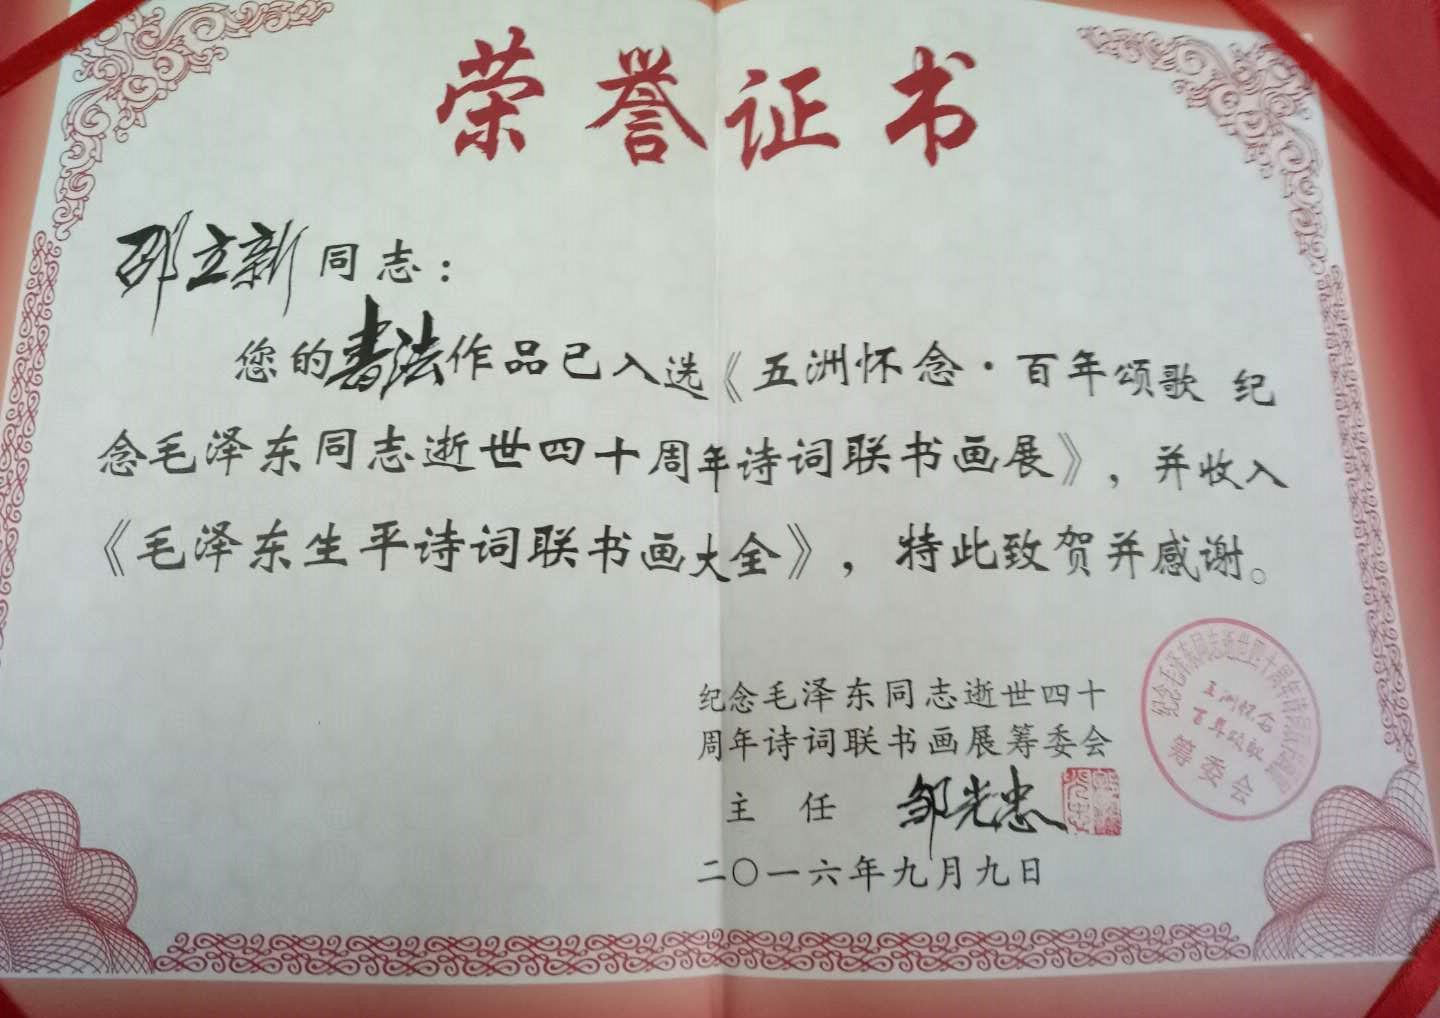 荣誉证书
邵立新同志：
您的书法作品已入选《五洲怀念·百年颂歌 纪
念毛泽东同志逝世四十周年诗词联书画展》，并收入
《毛泽东生平诗词联书画大全》，特此致贺并感谢。
纪念毛泽东同志逝世四十
周年诗词联书画展筹委会
主 任 邹光忠
二〇一六年九月九日
纪念毛泽东同志逝世四十周年诗词联书画展
五洲怀念
百年颂歌
筹委会